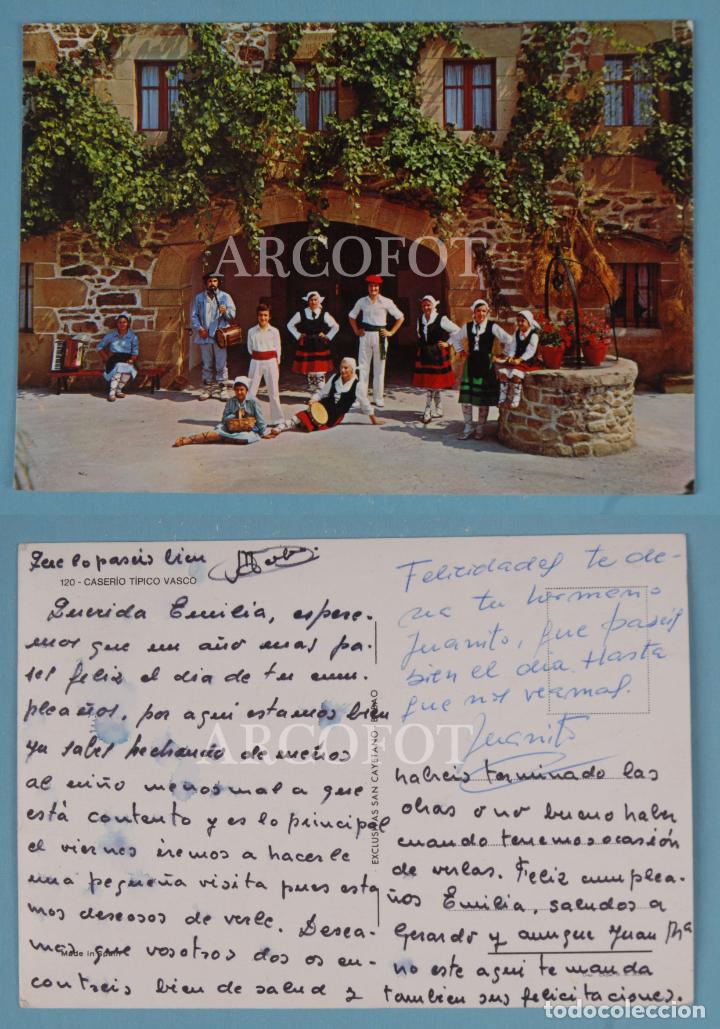 ARCOFOT
Que lo paseis bien
120 - CASERÍO TÍPICO VASCO
Querida Emilia, espere-
mos que un año mas pa-
ses feliz el dia de tu cum-
pleaños, por aqui estamos bien
ya sabes hechando de menos
al niño menos mal a que
está contento y es lo principal
el viernes iremos a hacerle
una pequeña visita pues esta
mos deseosos de verle. Desea-
mos que vosotros dos os en-
contreis bien de salud y
Made in Spain
EXCLUSIVAS SAN CAYETANO - BILBAO
Felicidades te de-
sea tu hermano
Juanito, que paseis
bien el dia. Hasta
que nos veamos.
Juanito
habreis terminado las
obras o no bueno haber
cuando tenemos ocasión
de verlas. Feliz cumplea-
ños Emilia, saludos a
Gerardo y aunque Juan Mª
no este aqui te manda
tambien sus felicitaciones.
ARCOFOT
todocoleccion